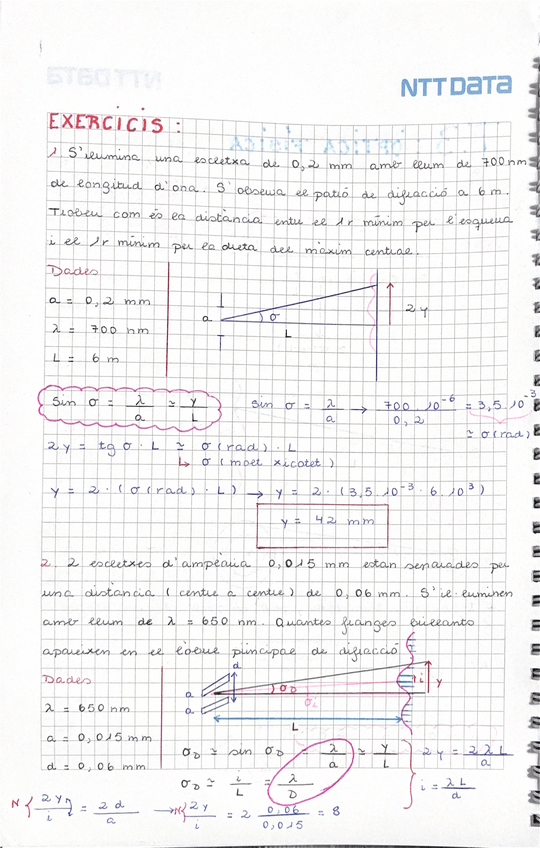 NTT DATA
EXERCICIS:
1. S'ilumina una escletxa de 0,2 mm amb llum de 700 nm
de longitud d'ona. S'observa el patió de difracció a 6 m.
Trobeu com és la distància entre el 1r mínim per l'esquerra
i el 1r mínim per la dreta del màxim central.
Dades
a = 0,2 mm
λ = 700 nm
L = 6 m
a σ L 2y
Sin σ = λ/a ≃ y/L
sin σ = λ/a → 700.10⁻⁶/0,2 = 3,5.10⁻³
≃ σ(rad)
2y = tg σ · L ≃ σ(rad) · L
↳ σ (molt xicotet)
y = 2 · (σ(rad) · L) → y = 2 · (3,5.10⁻³ · 6.10³)
y = 42 mm
2. 2 escletxes d'ampària 0,015 mm estan separades per
una distància (centre a centre) de 0,06 mm. S'il·luminen
amb llum de λ = 650 nm. Quantes franges brillants
apareixen en el lòbul principal de difracció
Dades
λ = 650 nm
a = 0,015 mm
d = 0,06 mm
a a d σD σi i y
L
σD ≃ sin σD = λ/a ≃ y/L
2y = 2λL/a
σD ≃ i/L = λ/D
i = λL/d
N{2y/i} = 2d/a → N{2y/i = 2 0,06/0,015 = 8